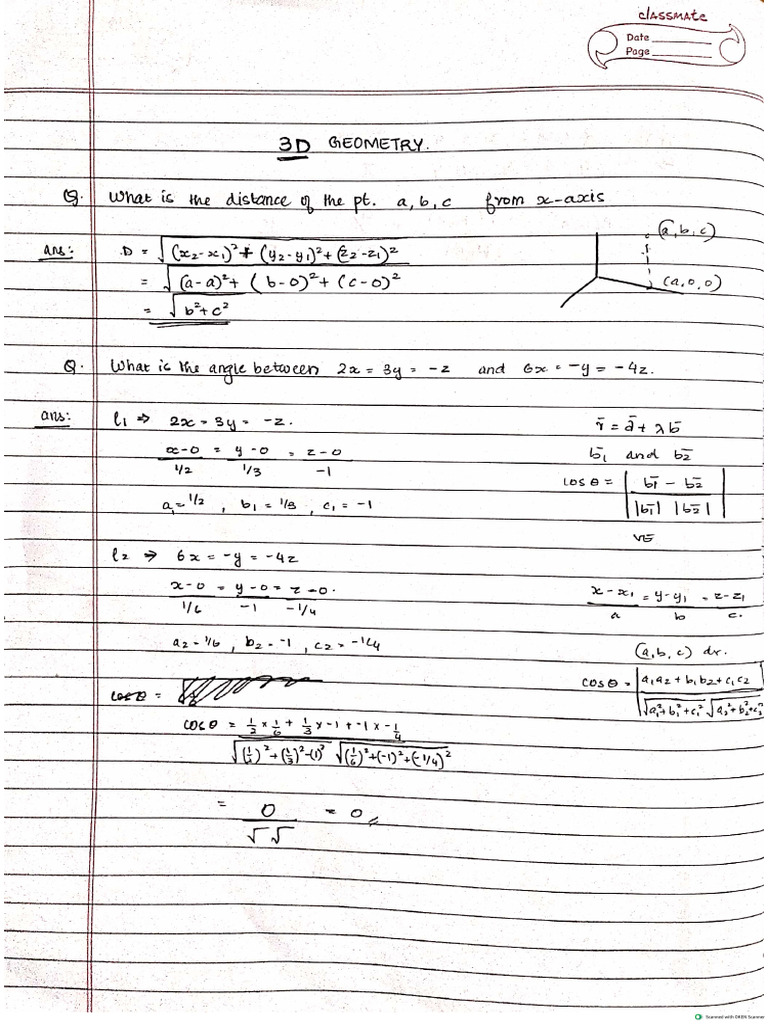 classmate
Date
Page
3D GEOMETRY.
Q. What is the distance of the pt. a, b, c from x-axis
ans: D = √(x₂-x₁)² + (y₂-y₁)² + (z₂-z₁)²
= √(a-a)² + (b-0)² + (c-0)²
= √b²+c²
(a, b, c)
(a, 0, 0)
Q. What is the angle between 2x = 3y = -z and 6x = -y = -4z.
ans: l₁ ⇒ 2x = 3y = -z.
x-0 / 1/2 = y-0 / 1/3 = z-0 / -1
a₁ = 1/2 , b₁ = 1/3 , c₁ = -1
r̄ = ā + λb̄
b̄₁ and b̄₂
cos θ = | b̄₁ - b̄₂ / |b̄₁| |b̄₂| |
l₂ ⇒ 6x = -y = -4z
x-0 / 1/6 = y-0 / -1 = z-0 / -1/4
a₂ = 1/6 , b₂ = -1 , c₂ = -1/4
x-x₁ / a = y-y₁ / b = z-z₁ / c.
(a, b, c) dr.
cos θ = | a₁a₂ + b₁b₂ + c₁c₂ / √a₁²+b₁²+c₁² √a₂²+b₂²+c₂² |
cos θ =
cos θ = 1/2 × 1/6 + 1/3 × -1 + -1 × -1/4 / √(1/2)² + (1/3)² -(1)² √(1/6)² + (-1)² + (-1/4)²
= 0 / √ √ = 0
Scanned with OKEN Scanner